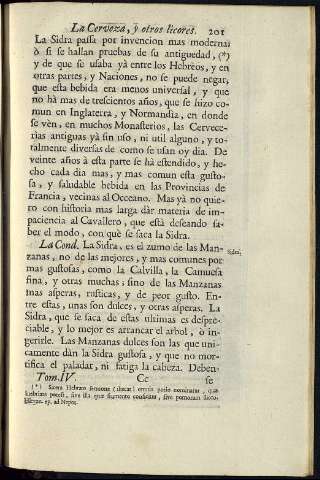 La Cerveza, y otros licores. 201
La Sidra passa por invencion mas moderna:
ò si se hallan pruebas de su antiguedad, (*)
y de que se usaba yà entre los Hebrèos, y en
otras partes, y Naciones, no se puede negar,
que esta bebida era menos universal, y que
no hà mas de trescientos años, que se hizo co-
mun en Inglaterra, y Normandia, en donde
se vèn, en muchos Monasterios, las Cervece-
rias antiguas yà sin uso, ni util alguno, y to-
talmente diversas de como se usan oy dia. De
veinte años à esta parte se hà estendido, y he-
cho cada dia mas, y mas comun esta gusto-
sa, y saludable bebida en las Provincias de
Francia, vecinas al Oceano. Mas yà no quie-
ro con historia mas larga dàr materia de im-
paciencia al Cavallero, que està deseando sa-
ber el modo, con què se saca la Sidra.
La Cond. La Sidra, es el zumo de las Man- Sidra.
zanas, no de las mejores, y mas comunes por
mas gustosas, como la Calvilla, la Camuesa
fina, y otras muchas; sino de las Manzanas
mas asperas, rusticas, y de peor gusto. En-
tre estas, unas son dulces, y otras asperas. La
Sidra, que se saca de estas ultimas es despre-
ciable, y lo mejor es arrancar el arbol, ò in-
gerirle. Las Manzanas dulces son las que uni-
camente dàn la Sidra gustosa, y que no mor-
tifica el paladar, ni fatiga la cabeza. Deben-
Tom. IV. Cc se
(*) Sicera Hebræo sermone omnis potio nominatur, quæ
inebriare potest, sive illa quæ frumento conficitur, sive pomorum succo.
ad Nepot.